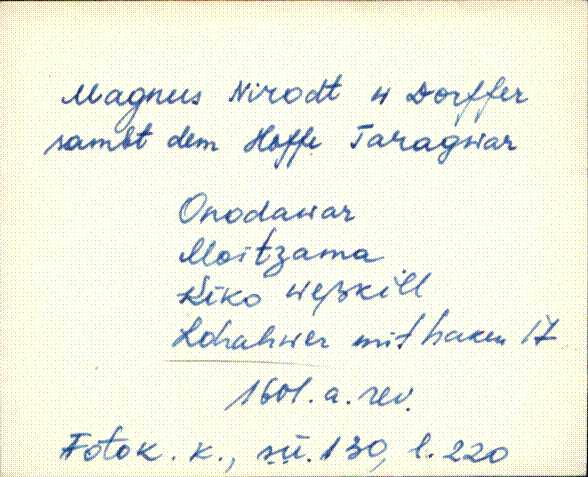 Magnus Nirodt 4 Dorffer
sambt dem Hoffe Taragwar
Onodawar
Moitzama
Kiko weßkill
mit haken 17
1601. a. rev.
Fotok. k., sü. 130, l. 220